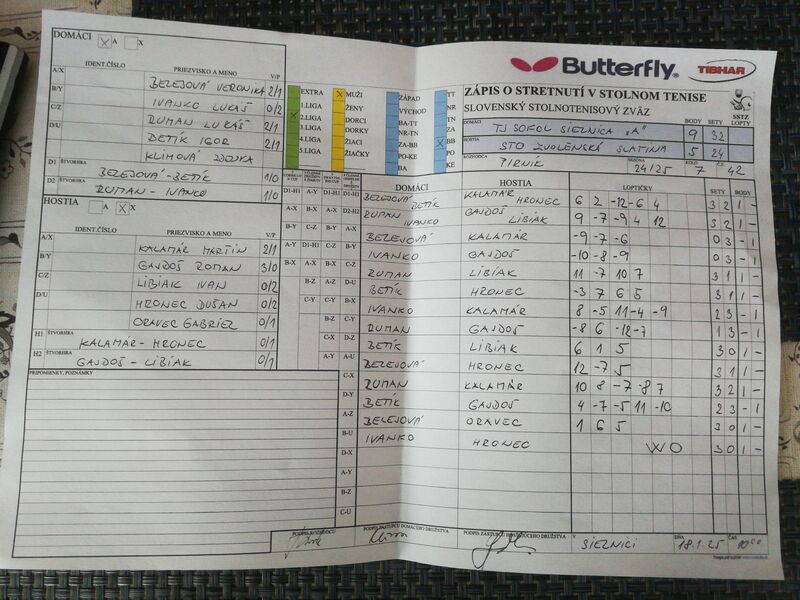 DOMÁCI X A X
IDENT.ČÍSLO PRIEZVISKO A MENO V/P
A/X BELEJOVÁ VERONIKA 2/1
B/Y IVANKO LUKÁŠ 0/2
C/Z RUMAN LUKÁŠ 2/1
D/U BETÍK IGOR 2/1
KLIMOVÁ ZDENKA
D1 ŠTVORHRA BELEJOVÁ-BETÍK 1/0
D2 ŠTVORHRA RUMAN - IVANKO 1/0
HOSTIA A X X
IDENT.ČÍSLO PRIEZVISKO A MENO V/P
A/X KALAMÁR MARTIN 2/1
B/Y GAJDOŠ ROMAN 3/0
C/Z LIBIAK IVAN 0/2
D/U HRONEC DUŠAN 0/2
ORAVEC GABRIEL 0/1
H1 ŠTVORHRA KALAMÁR-HRONEC 0/1
H2 ŠTVORHRA GAJDOŠ - LIBIAK 0/1
PRIPOMIENKY, POZNÁMKY
Butterfly TIBHAR
ZÁPIS O STRETNUTÍ V STOLNOM TENISE
SLOVENSKÝ STOLNOTENISOVÝ ZVÄZ
SSTZ
EXTRA X MUŽI ZÁPAD TT
1.LIGA ŽENY VÝCHOD NR
X 2.LIGA DORCI BA-TT TN
3.LIGA DORKY NR-TN ZA
4.LIGA ŽIACI ZA-BB X BB
5.LIGA ŽIAČKY PO-KE PO
BA KE
DOMÁCI TJ SOKOL SIELNICA "A" BODY 9 SETY 32 LOPTY
HOSTIA STO ZVOLENSKÁ SLATINA 5 24
ROZHODCA PIRNÍK SEZÓNA 24/25 KOLO 7 Č.S. 42
DOMÁCI HOSTIA LOPTIČKY SETY BODY
BELEJOVÁ BETÍK KALAMÁR HRONEC 6 2 -12 -6 4 3 2 1 -
RUMAN IVANKO GAJDOŠ LIBIAK 9 -7 -9 4 12 3 2 1 -
BELEJOVÁ KALAMÁR -9 -7 -6 0 3 - 1
IVANKO GAJDOŠ -10 -8 -9 0 3 - 1
RUMAN LIBIAK 11 -7 10 7 3 1 1 -
BETÍK HRONEC -3 7 6 5 3 1 1 -
IVANKO KALAMÁR 8 -5 11 -4 -9 2 3 - 1
RUMAN GAJDOŠ -8 6 -12 -7 1 3 - 1
BETÍK LIBIAK 6 1 5 3 0 1 -
BELEJOVÁ HRONEC 12 -7 5 3 1 1 -
RUMAN KALAMÁR 10 8 -7 -8 7 3 2 1 -
BETÍK GAJDOŠ 4 -7 -5 11 -10 2 3 - 1
BELEJOVÁ ORAVEC 1 6 5 3 0 1 -
IVANKO HRONEC WO 3 0 1 -
D1-H1 A-Y D1-H1 D1-H1
A-X B-X A-X D2-H2
B-Y C-Z B-Y A-X
A-Y D1-H1 C-Z B-Y
B-X A-X B-X C-Z
B-Z A-Z D-U
C-Y C-Y A-Y
B-Z B-Z
C-X D-Z
A-Y A-U
C-X
D-Y
A-Z
B-U
D-X
A-Y
B-Z
C-U
PODPIS ROZHODCU PODPIS ZÁSTUPCU DOMÁCEHO DRUŽSTVA PODPIS ZÁSTUPCU HOSŤUJÚCEHO DRUŽSTVA V SIELNICI DŇA 18.1.25 ČAS 10:00